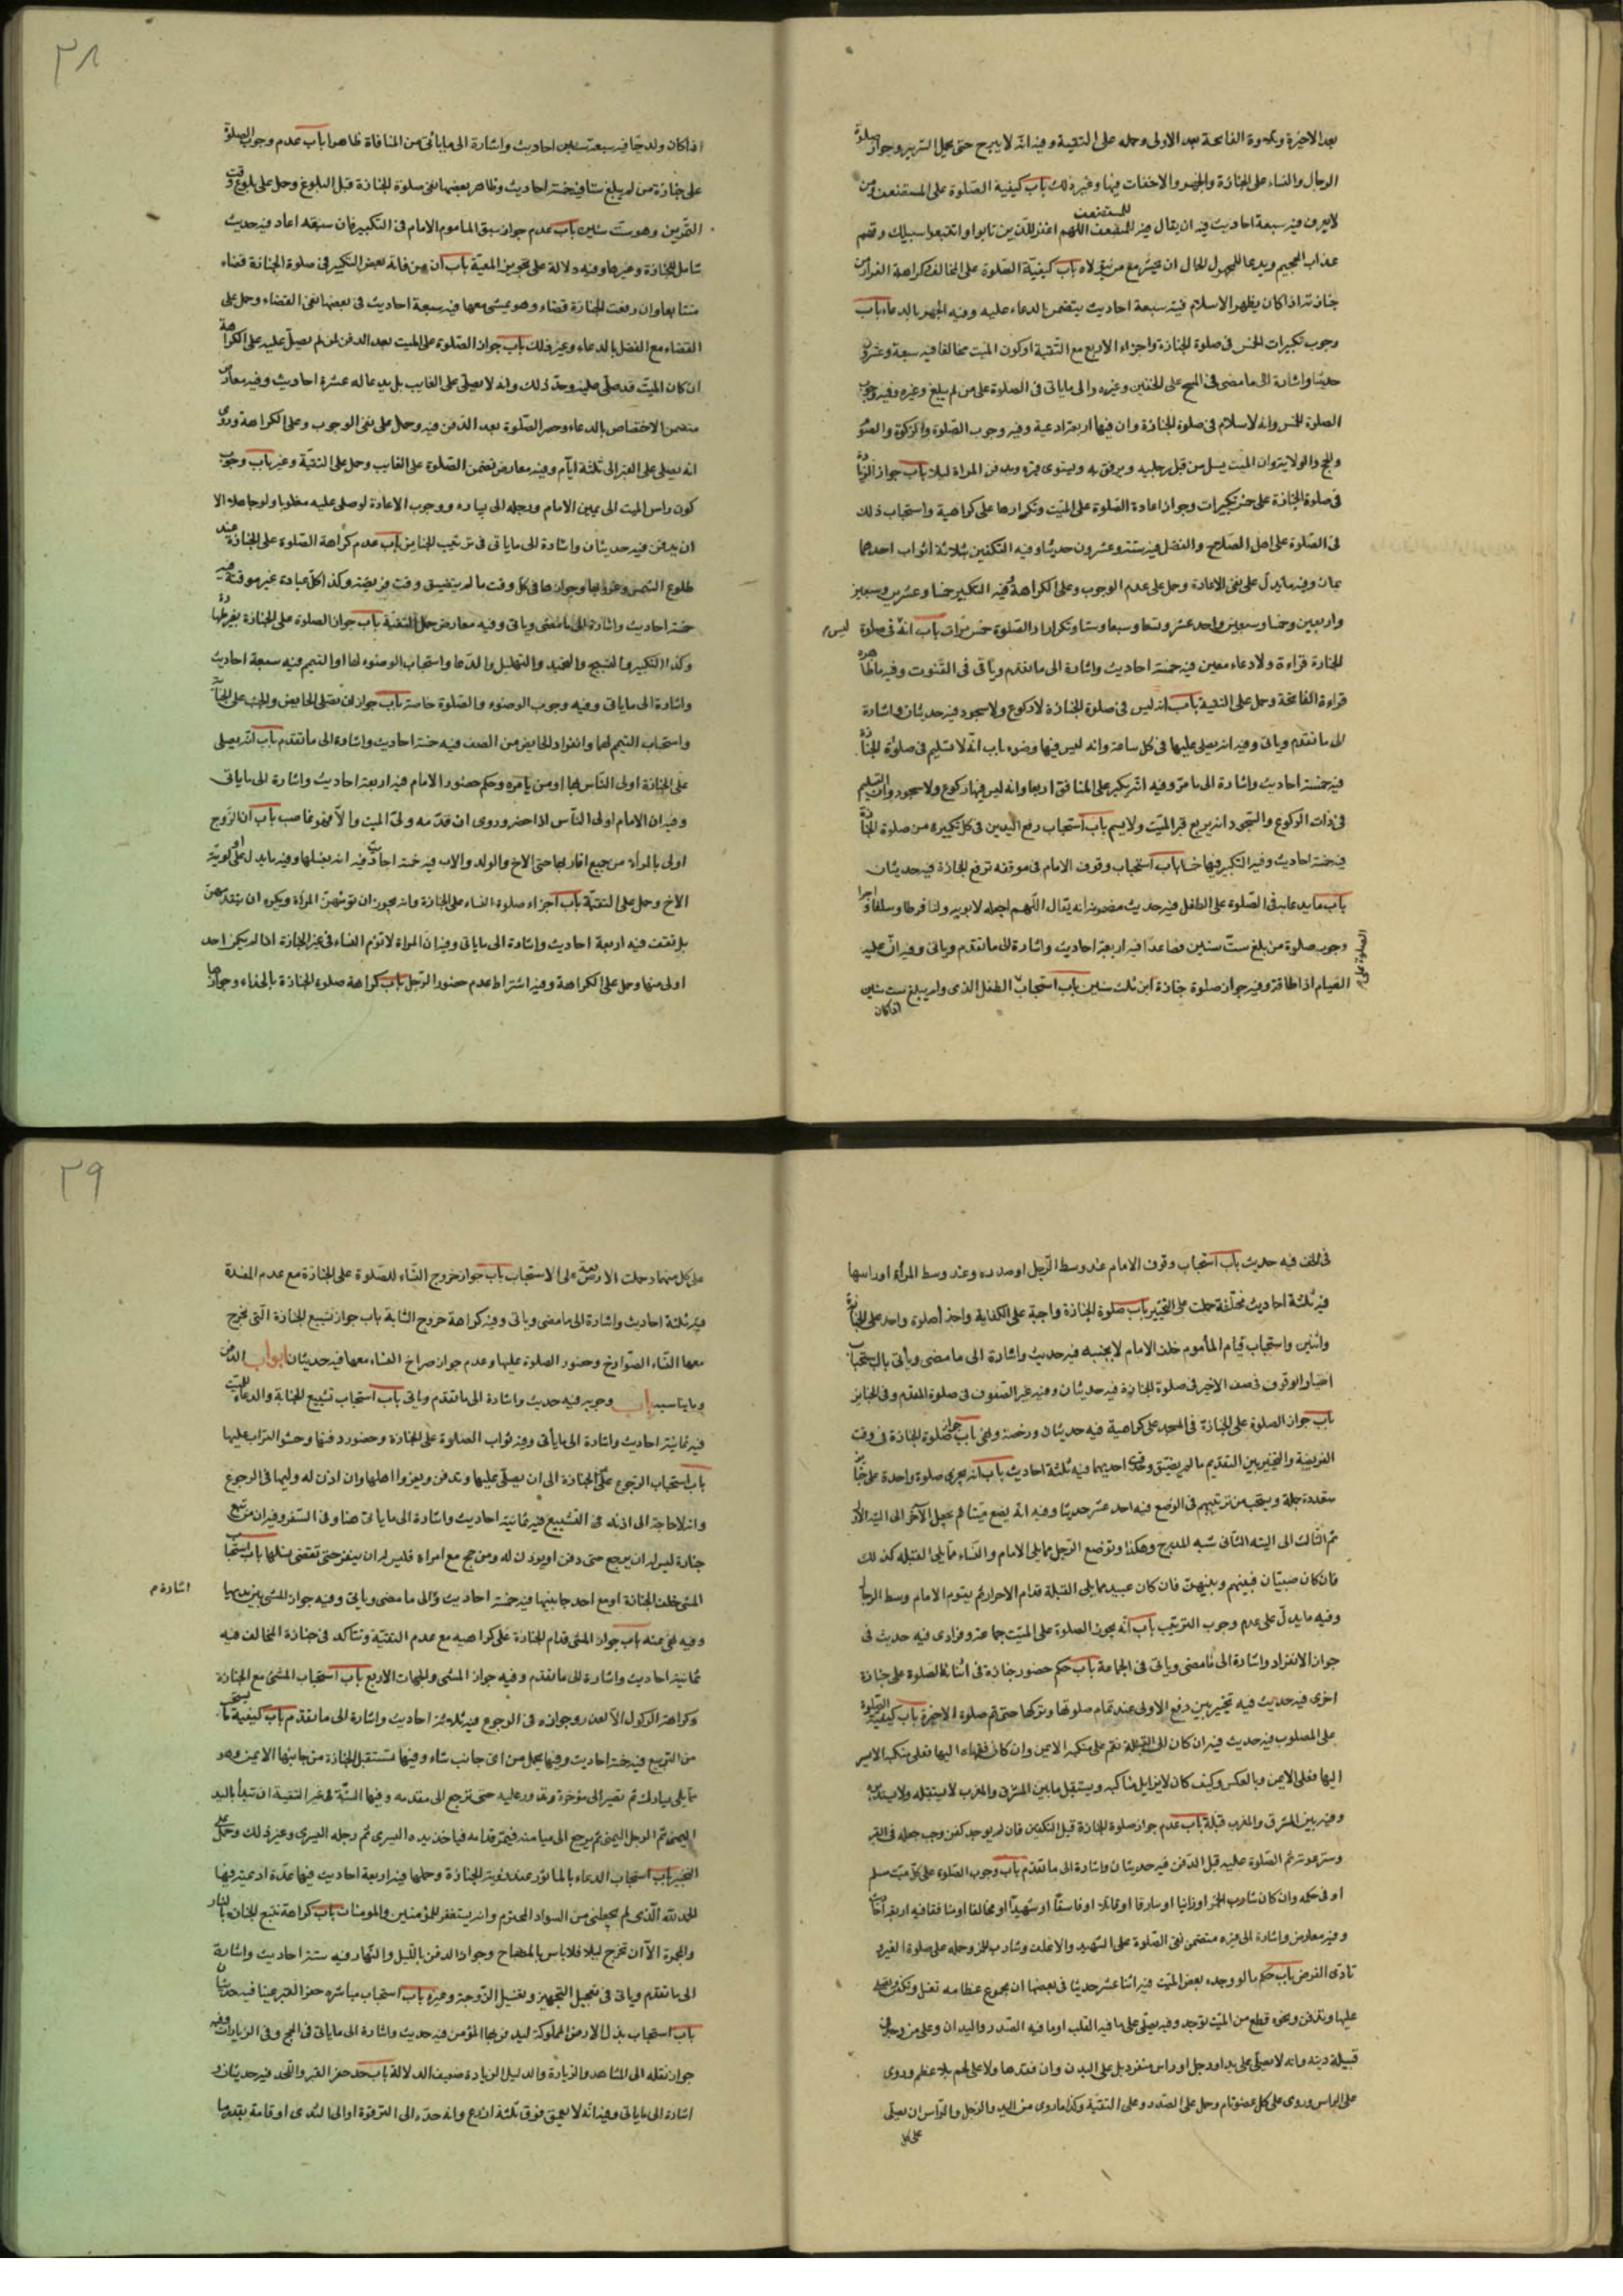 بعد الاخيرة وبكسوة الفاتحة بعد الاولى وحمله على التقية وفيه انه لا يبرح حتى يحمل السرير وجواز صلوة
الرجال والنساء على الجنازة والجهر والاخفات فيها وغير ذلك باب كيفية الصلوة على المستضعف ومن
لا يعرف فيه سبعة احاديث فيه ان يقال فيه للمستضعف اللهم اغفر للذين تابوا واتبعوا سبيلك وقهم
عذاب الجحيم ويدعا للمجهول الحال ان يحشر مع من يتولاه باب كيفية الصلوة على المخالف وكراهة الفرار من
جنازته اذا كان يظهر الاسلام فيه سبعة احاديث يتضمن الدعاء عليه وفيه الجهر بالدعاء باب
وجوب تكبيرات الخمس في صلوة الجنازة واجزاء الاربع مع التقية او كون الميت مخالفا فيه سبعة وعشرون
حديثا واشارة الى ما مضى في المسح على الخفين وغيره والى ما ياتى فى الصلوة على من لم يبلغ وغيره وفيه وجوب
الصلوة الخمس وانه لا سلام فى صلوة الجنازة وان فيها اربعة ادعية وفيه وجوب الصلوة والزكوة والصوم
والحج والولاية وان الميت يسل من قبل رجليه ويرفق به ويستوى قبره ويدفن المراة ليلا باب جواز الزيادة
فى صلوة الجنازة على خمس تكبيرات وجواز اعادة الصلوة على الميت وتكرارها على كراهية واستحباب ذلك
فى الصلوة على اهل الصلاح والفضل فيه ستة وعشرون حديثا وفيه التكفين بثلاثة اثواب احدها
يمان وفيه ما يدل على نفى الاعادة وحمل على عدم الوجوب وعلى الكراهة فيه التكبير خمسا وعشرين وسبعين
واربعين وخمسا وسبعين واحد عشر وتسعا وسبعا وستا وتكرار الصلوة خمس مرات باب انه فى صلوة
ليس
الجنازة قراءة ولا دعاء معين فيه خمسة احاديث واشارة الى ما تقدم وياتى فى القنوت وفيه ما ظاهره
قراءة الفاتحة وحمل على التقية باب انه ليس فى صلوة الجنازة لا ركوع ولا سجود فيه حديثان واشارة
الى ما تقدم وياتى وفيه انه يصلى عليها فى كل ساعة وانه ليس فيها وضوء باب انه لا تسليم فى صلوة الجنازة
فيه خمسة احاديث واشارة الى ما مر وفيه انه يكبر على المنافق اربعا وانه ليس فيها ركوع ولا سجود وان التسليم
فى ذات الركوع والسجود انه يربع قبر الميت ولا يسم باب استحباب رفع اليدين فى كل تكبيرة من صلوة الجنازة
فيه خمسة احاديث وفيه التكبير فيها خمسا باب استحباب وقوف الامام فى موقفه ترفع الجنازة فيه حديثان
باب ما يدعا به فى الصلوة على الطفل فيه حديث مضمونه انه يقال اللهم اجعله لابويه ولنا فرطا وسلفا واجرا
وجوب صلوة من بلغ ست سنين فصاعدا فيه اربعة احاديث واشارة الى ما تقدم وياتى وفيه ان عليه
الصلوة على
القيام اذا اطاقه وفيه جواز صلوة جنازة ابن ثلث سنين باب استحباب الطفل الذى ولم يبلغ ست سنين
اذا كان
٣٨
اذا كان ولد حيا فيه سبعة احاديث واشارة الى ما ياتى من المنافاة ظاهرا باب عدم وجوب الصلوة
على جنازة من لم يبلغ ستا فيه خمسة احاديث وظاهر بعضها نفى صلوة الجنازة قبل البلوغ وحمل على بلوغ وقت
التمرين وهو ست سنين باب عدم جواز سبق الماموم الامام فى التكبير فان سبقه اعاد فيه حديث
شامل للجنازة وغيرها وفيه دلالة على تجويز المعية باب ان من فاته بعض التكبير فى صلوة الجنازة قضاء
متتابعا وان رفعت الجنازة قضاء وهو يمشى معها فيه سبعة احاديث فى بعضها نفى القضاء وحمل على
القضاء مع الفصل بالدعاء وغير ذلك باب جواز الصلوة على الميت بعد الدفن لمن لم يصل عليه على الكراهة
ان كان الميت قد صلى عليه وحد ذلك وانه لا يصلى على الغايب بل يدعا له عشرة احاديث وفيه معارض
متضمن الاختصاص بالدعاء وحصر الصلوة بعد الدفن فيه وحمل على نفى الوجوب وعلى الكراهة وروى
انه يصلى على القبر الى ثلثة ايام وفيه معارض يتضمن الصلوة على الغايب وحمل على التقية وغير باب وجوب
كون راس الميت الى يمين الامام ورجله الى يساره ووجوب الاعادة لو صلى عليه مقلوبا ولو جاهلا الا
ان يدفن فيه حديثان واشارة الى ما ياتى فى ترتيب الجنايز باب عدم كراهة الصلوة على الجنازة عند
طلوع الشمس وغروبها وجوازها فى كل وقت ما لم يتضيق وقت فريضة وكذا كل عبادة غير موقتة فيه
خمسة احاديث واشارة الى ما مضى وياتى وفيه معارض حمل التقية باب جواز الصلوة على الجنازة بغير طهارة
وكذا التكبير والتسبيح والتحميد والتهليل والدعا واستحباب الوضوء لها او التيمم فيه سبعة احاديث
واشارة الى ما ياتى وفيه وجوب الوضوء والصلوة خاصة باب جواز ان تصلى الحايض والجنب على الجنازة
واستحباب التيمم لهما وانفراد الحايض من الصف فيه خمسة احاديث واشارة الى ما تقدم باب انه يصلى
على الجنازة اولى الناس بها او من يامره وحكم حضور الامام فيه اربعة احاديث واشارة الى ما ياتى
وفيه ان الامام اولى الناس اذا حضر وروى ان قدمه ولى الميت والا فهو غاصب باب ان الزوج
اولى بالمراة من جميع اقاربها حتى الاخ والولد والاب فيه خمسة احاديث فيه انه يغسلها وفيه ما يدل على اولوية
الاخ وحمل على التقية باب اجزاء صلوة النساء على الجنازة وانه يجوز ان تؤمهن المراة ويكره ان يتقدمهن
بل تقف فيه اربعة احاديث واشارة الى ما ياتى وفيه ان المراة لا تؤم النساء فى غير الجنازة اذا لم يكن احد
اولى منها وحمل على الكراهة وفيه اشتراط عدم حضور الرجل باب كراهة صلوة الجنازة بالحذاء وجوازها
فى الخف فيه حديث باب استحباب وقوف الامام عند وسط الرجل او صدره وعند وسط المراة او راسها
فيه ثلثة احاديث مختلفة حملت على التخيير باب صلوة الجنازة واجبة على الكفاية واجزأ صلوة واحد على الجنازة
واثنين واستحباب قيام المأموم خلف الامام لا بجنبه فيه حديث واشارة الى ما مضى ويأتى باب استحباب
اختيار الوقوف فى صف الاخير فى صلوة الجنازة فيه حديثان وفيه خير الصفوف فى صلوة المقدم وفى الجنايز
باب جواز الصلوة على الجنازة فى المسجد على كراهية فيه حديثان ورخصة ونهى باب جواز صلوة الجنازة فى وقت
الفريضة والتخيير بين التقديم ما لم يتضيق وقت احديهما فيه ثلثة احاديث باب انه يجزى صلوة واحدة على جنايز
متعددة جملة ويستحب من ترتيبهم فى الوضع فيه احد عشر حديثا وفيه انه يضع ميتا ثم يجعل الآخر الى الية الاول
ثم الثالث الى الية الثانى شبه المدرج وهكذا وتوضع الرجل مما يلى الامام والنساء مما يلى القبلة كذلك
فان كان صبيان فبينهم وبينهن فان كان عبيد مما يلى القبلة قدام الاحرار ثم يقوم الامام وسط الرجال
وفيه ما يدل على عدم وجوب الترتيب باب انه يجوز الصلوة على الميت جماعة وفرادى فيه حديث فى
جواز الانفراد واشارة الى ما مضى وياتى فى الجماعة باب حكم حضور جنازة فى اثناء الصلوة على جنازة
اخرى فيه حديث فيه تخيير بين رفع الاولى عند تمام صلوتها وتركها حتى تم صلوة الاخيرة باب كيفية الصلوة
على المصلوب فيه حديث فيه ان كان الى القبلة نقم على منكبه الايمن وان كان قفاه اليها فعلى منكبه الايسر
اليها فعلى الايمن وبالعكس وكيف كان لا يزايل مناكبه ويستقبل ما بين المشرق والمغرب لا يستقبله ولا يستدبره
وفيه بين المشرق والمغرب قبلة باب عدم جواز صلوة الجنازة قبل التكفين فان لم يوجد كفن وجب جعله فى القبر
وستر عورته ثم الصلوة عليه قبل الدفن فيه حديثان واشارة الى ما تقدم باب وجوب الصلوة على كل ميت مسلم
او فى حكمه وان كان شارب الخمر او زانيا او سارقا او قاتلا او فاسقا او شهيدا او مخالفا او منافقا فيه اربعة احاديث
وفيه معارض واشارة الى غيره متضمن نفى الصلوة على الشهيد والاغلف وشارب الخمر وحمله على صلوة الغير
تادى الفرض باب حكم ما لو وجد بعض الميت فيه اثنا عشر حديثا فى بعضها ان مجموع عظامه تغسل وتكفن ويصلى
عليها وتدفن ونحوه قطع من الميت توجد وفيه يصلى على ما فيه القلب او ما فيه الصدر واليدان وعلى من وجد فى
قبيلة ديته وانه لا يصلى على يد او رجل او راس منفرد بل على البدن وان فقدها ولا على لحم بلا عظم وروى
على الراس وروى على كل عضو تام وحمل على الصدر وعلى التقية وكذا ما روى من اليد والرجل والراس ان يصلى
على كل
٣٩
على كل منها وحملت الاربعة على الاستحباب باب جواز خروج النساء للصلوة على الجنازة مع عدم المفسدة
فيه ثلثة احاديث واشارة الى ما مضى وياتى وفيه كراهة خروج الشابة باب جواز تشييع الجنازة التى يخرج
معها النساء الصوارخ وحضور الصلوة عليها وعدم جواز صراخ النساء معها فيه حديثان ابواب الدفن
وما يناسبه باب وجوبه فيه حديث واشارة الى ما تقدم وياتى باب استحباب تشييع الجنازة والدعاء للميت
فيه ثمانية احاديث واشارة الى ما يأتى وفيه ثواب الصلوة على الجنازة وحضور دفنها وحثو التراب عليها
باب استحباب الرجوع على الجنازة الى ان يصلى عليها وتدفن ويعزوا اهلها وان اذن له وليها فى الرجوع
وانه لا حاجة الى اذنه فى التشييع فيه ثمانية احاديث واشارة الى ما ياتى هنا وفى السفر وفيه ان من تبع
جنازة ليس له ان يرجع حتى دفن او يوذن له ومن حج مع امراة فليس له ان ينفر حتى تقضى نسكها باب استحباب
المشى خلف الجنازة او مع احد جانبيها فيه خمسة احاديث والى ما مضى وياتى وفيه جواز المشى بين يديها
اشارة
وفيه نهى عنه باب جواز المشى قدام الجنازة على كراهية مع عدم التقية وتتأكد فى جنازة المخالف فيه
ثمانية احاديث واشارة الى ما تقدم وفيه جواز المشى والجهات الاربع باب استحباب المشى مع الجنازة
وكراهة الركوب الا لعذر وجوازه فى الرجوع فيه ثلاثة احاديث واشارة الى ما تقدم باب كيفية ما يستحب
من التربيع فيه خمسة احاديث وفيها يحمل من اى جانب شاء وفيها تستقبل الجنازة من جانبها الايمن وهو
مما يلى يسارك ثم تصير الى مؤخره وتدور عليه حتى ترجع الى مقدمه وفيها السنة فى غير التقية ان تبدأ باليد
اليمنى ثم الرجل اليمنى ثم يرجع الى ميامنه فيمر قدامه فياخذ يده اليسرى ثم رجله اليسرى وغير ذلك وحمل على
التخيير باب استحباب الدعاء بالماثور عند رؤية الجنازة وحملها فيه اربعة احاديث فيها عدة ادعية منها
الحمد لله الذى لم يجعلنى من السواد المخترم وانه يستغفر للمؤمنين والمومنات باب كراهة تتبع الجنازة بالنار
والمجمرة الا ان تخرج ليلا فلا باس بالمصباح وجواز الدفن بالليل والنهار فيه ستة احاديث واشارة
الى ما تقدم وياتى فى تعجيل التجهيز وتغسيل الزوجة وغيره باب استحباب مباشرة حفر القبر عينا فيه حديثان
باب استحباب بذل الارض المملوكة ليدفن بها المؤمن فيه حديث واشارة الى ما ياتى فى الحج وفى الزيارات وفيه
جواز نقله الى المشاهد والزيارة والدليل الزيادة ضعيف الدلالة باب حد حفر القبر واللحد فيه حديثان و
اشارة الى ما ياتى وفيه انه لا يعمق فوق ثلثة اذرع وانه حده الى الترقوة او الى الثدى او قامة بقدرها